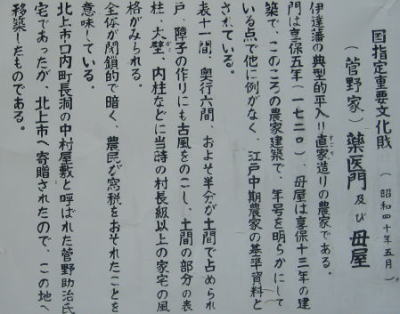 国指定重要文化財
(昭和四十年五月)
(菅野家)藥医門及び母屋
伊達藩の典型的平入り直家造りの農家である。
門は享保五年(一七二〇)、母屋は享保十三年の建
築で、このころの農家建築で、年号を明らかにして
いる点で他に例がなく、江戸中期農家の基準資料と
されている。
表十一間、奥行六間、およそ半分が土間で占められ
戸・障子の作りにも古風をのこし、土間の部分の表
柱・大壁、内柱などに当時の村長級以上の家宅の風
格がみられる。
全体が閉鎖的で暗く、農民が窓税をおそれたことを
意味している。
北上市口内町長洞の中村屋敷と呼ばれた菅野助治氏
宅であったが、北上市へ寄贈されたので、この地へ
移築したものである。